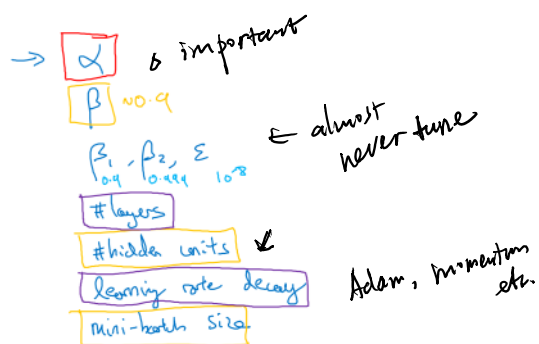 → α important
β ~0.9
β₁, β₂, ε ← almost
0.9 0.999 10⁻⁸ never tune
#layers
#hidden units
learning rate decay Adam, momentum
etc.
mini-batch size